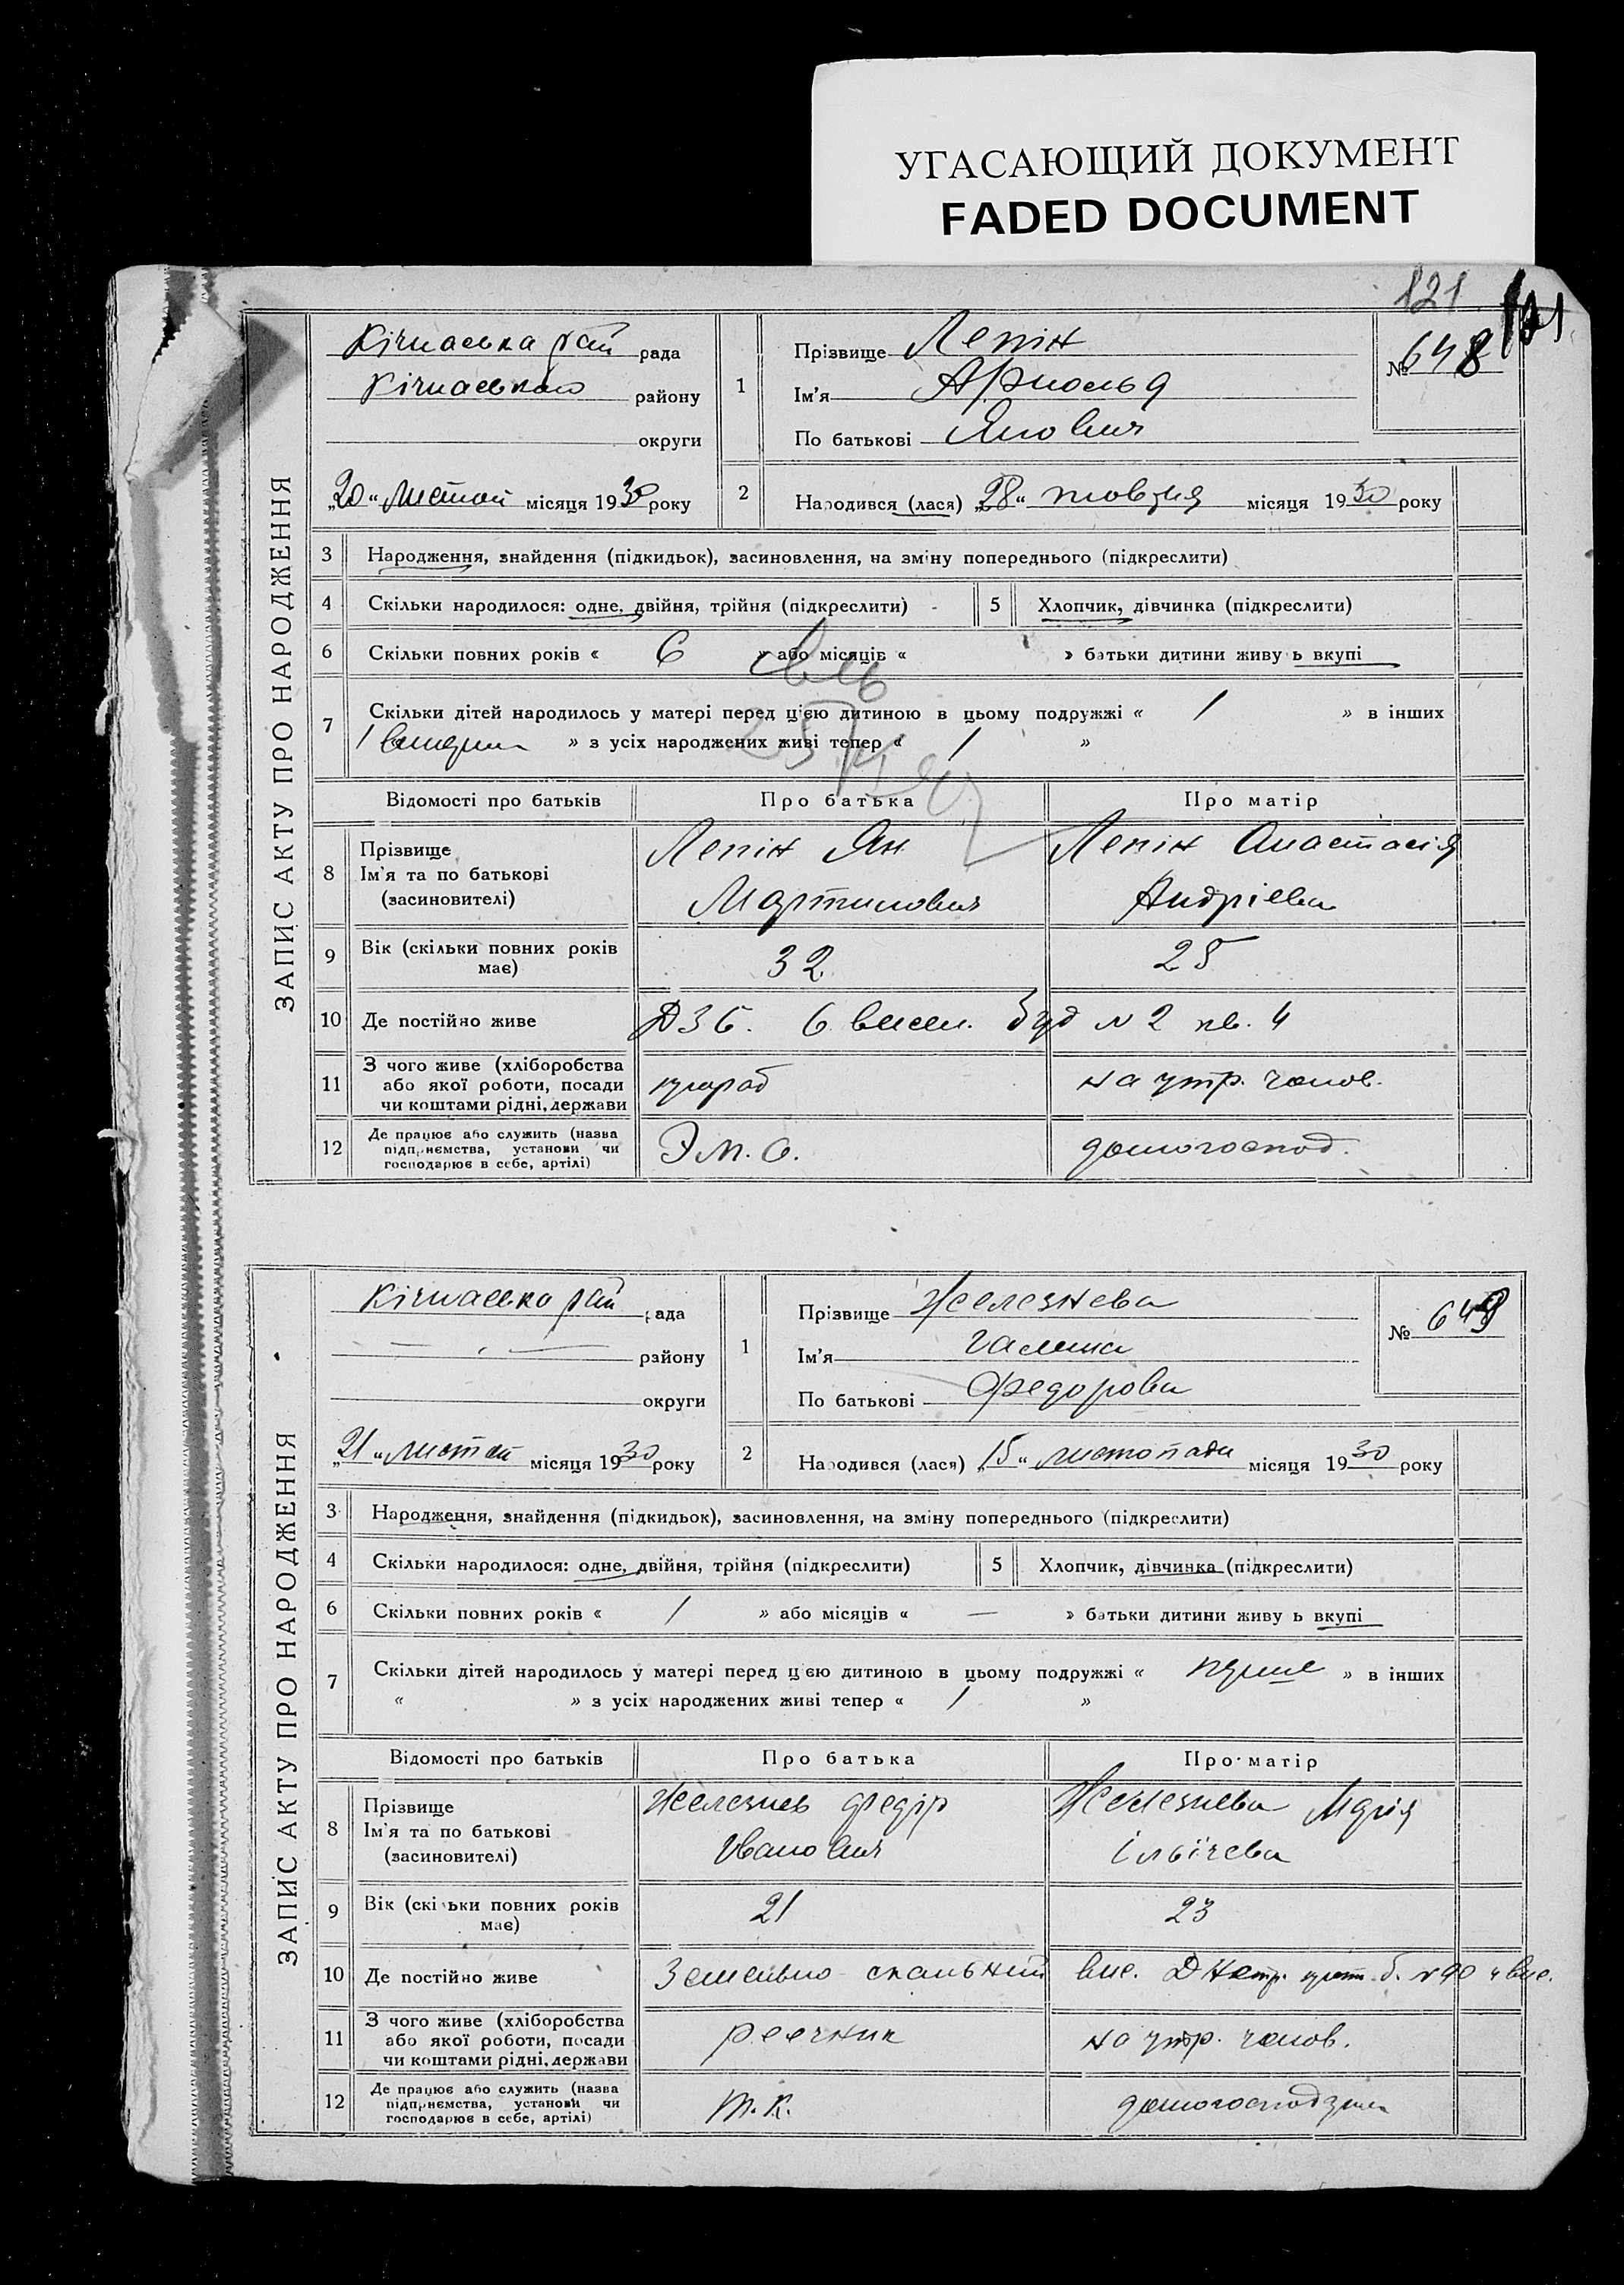 УГАСАЮЩИЙ ДОКУМЕНТ
FADED DOCUMENT
121
ЗАПИС АКТУ ПРО НАРОДЖЕННЯ
Кічкаська рай рада
Кічкаського району
округи
„20“ листоп місяця 1930 року
1
Прізвище Лепін
Ім'я Арнольд
По батькові Янович
№ 648
2
Народився (лася) „28“ жовтня місяця 1930 року
3 Народження, знайдення (підкидьок), засиновлення, на зміну попереднього (підкреслити)
4 Скільки народилося: одне, двійня, трійня (підкреслити)
5 Хлопчик, дівчинка (підкреслити)
6 Скільки повних років « 6 » або місяців « » батьки дитини живуть вкупі
7 Скільки дітей народилось у матері перед цією дитиною в цьому подружжі « 1 » в інших
» з усіх народжених живі тепер « 1 »
Відомості про батьків Про батька Про матір
8 Прізвище Ім'я та по батькові (засиновителі)
Лепін Ян Лепін Анастасія
Мартинович Андріевна
9 Вік (скільки повних років має) 32 25
10 Де постійно живе 6 висел. буд № 2 кв. 4
11 З чого живе (хліборобства
або якої роботи, посади
чи коштами рідні, держави
на утр. чолов.
12 Де працює або служить (назва
підприємства, установи чи
господарює в себе, артілі)
домогоспод.
ЗАПИС АКТУ ПРО НАРОДЖЕННЯ
Кічкаська рай рада
району
округи
„21“ листоп місяця 1930 року
1
Прізвище Железнева
Ім'я Галина
По батькові Федорова
№ 649
2
Народився (лася) „15“ листопада місяця 1930 року
3 Народження, знайдення (підкидьок), засиновлення, на зміну попереднього (підкреслити)
4 Скільки народилося: одне, двійня, трійня (підкреслити)
5 Хлопчик, дівчинка (підкреслити)
6 Скільки повних років « 1 » або місяців « — » батьки дитини живуть вкупі
7 Скільки дітей народилось у матері перед цією дитиною в цьому подружжі « перше » в інших
« » з усіх народжених живі тепер « 1 »
Відомості про батьків Про батька Про матір
8 Прізвище Ім'я та по батькові (засиновителі)
Железнев Федір Железнева Марія
Иванович Ільїчева
9 Вік (скільки повних років має) 21 23
10 Де постійно живе Земельно скальний вис.
11 З чого живе (хліборобства
або якої роботи, посади
чи коштами рідні, держави
реечник на утр. чолов.
12 Де працює або служить (назва
підприємства, установи чи
господарює в себе, артілі)
Т. К. домогосподин